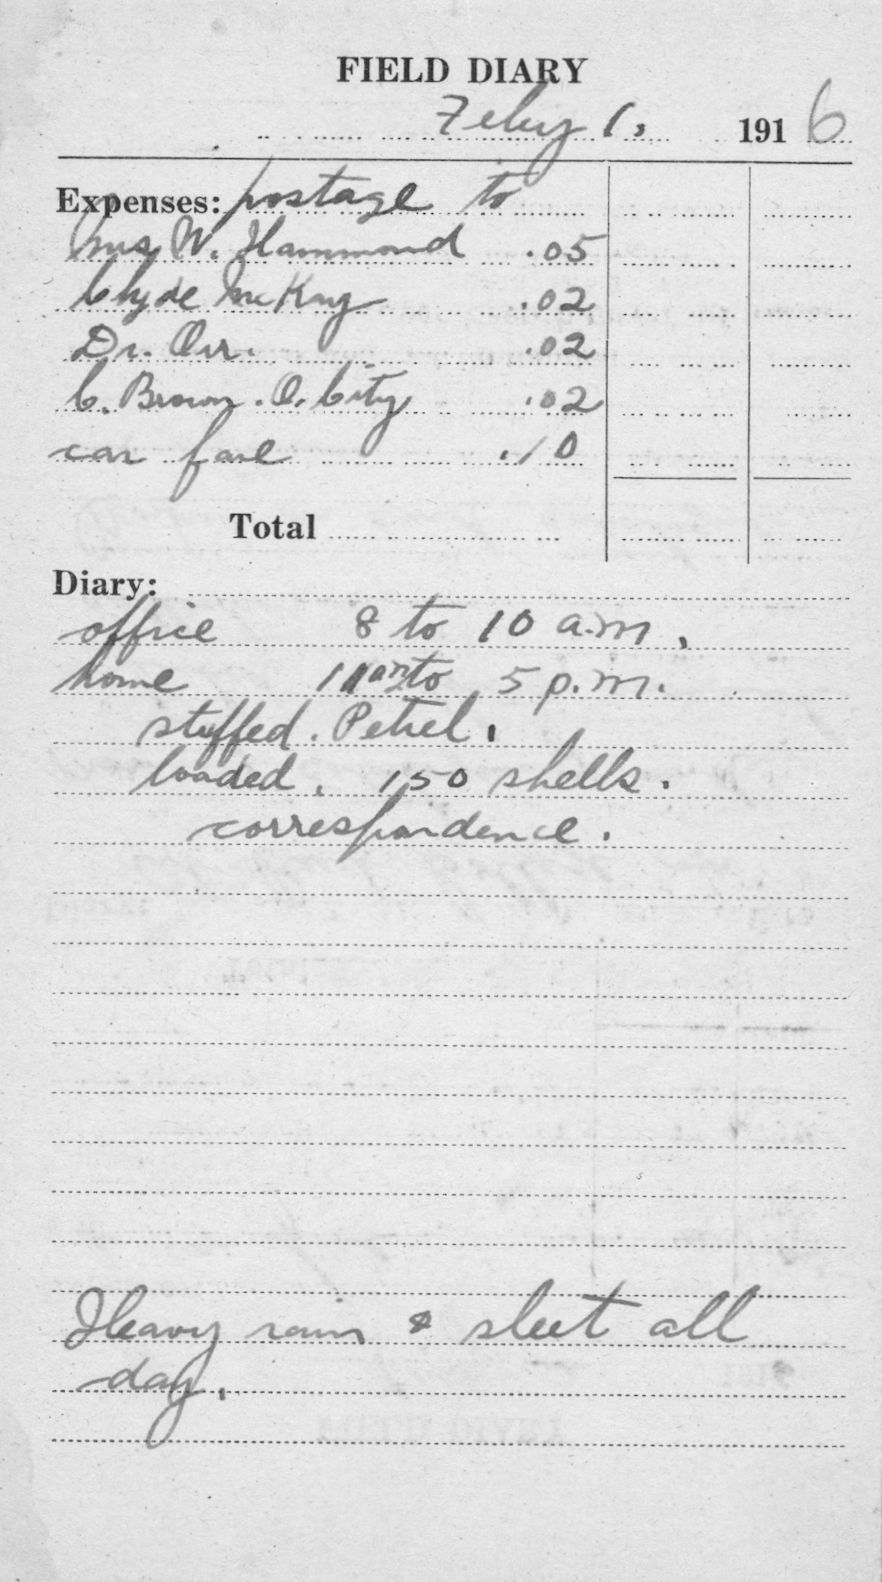 FIELD DIARY
Feby 1, 1916
Expenses: postage to
Mrs W. Hammond .05
Clyde McKay .02
Dr. Orr. .02
C. Brown. O. City .02
car fare .10
Total
Diary:
office 8 to 10 a.m.
home 11 am to 5 p.m.
stuffed. Petrel.
loaded. 150 shells.
correspondence.
Heavy rain & sleet all
day.